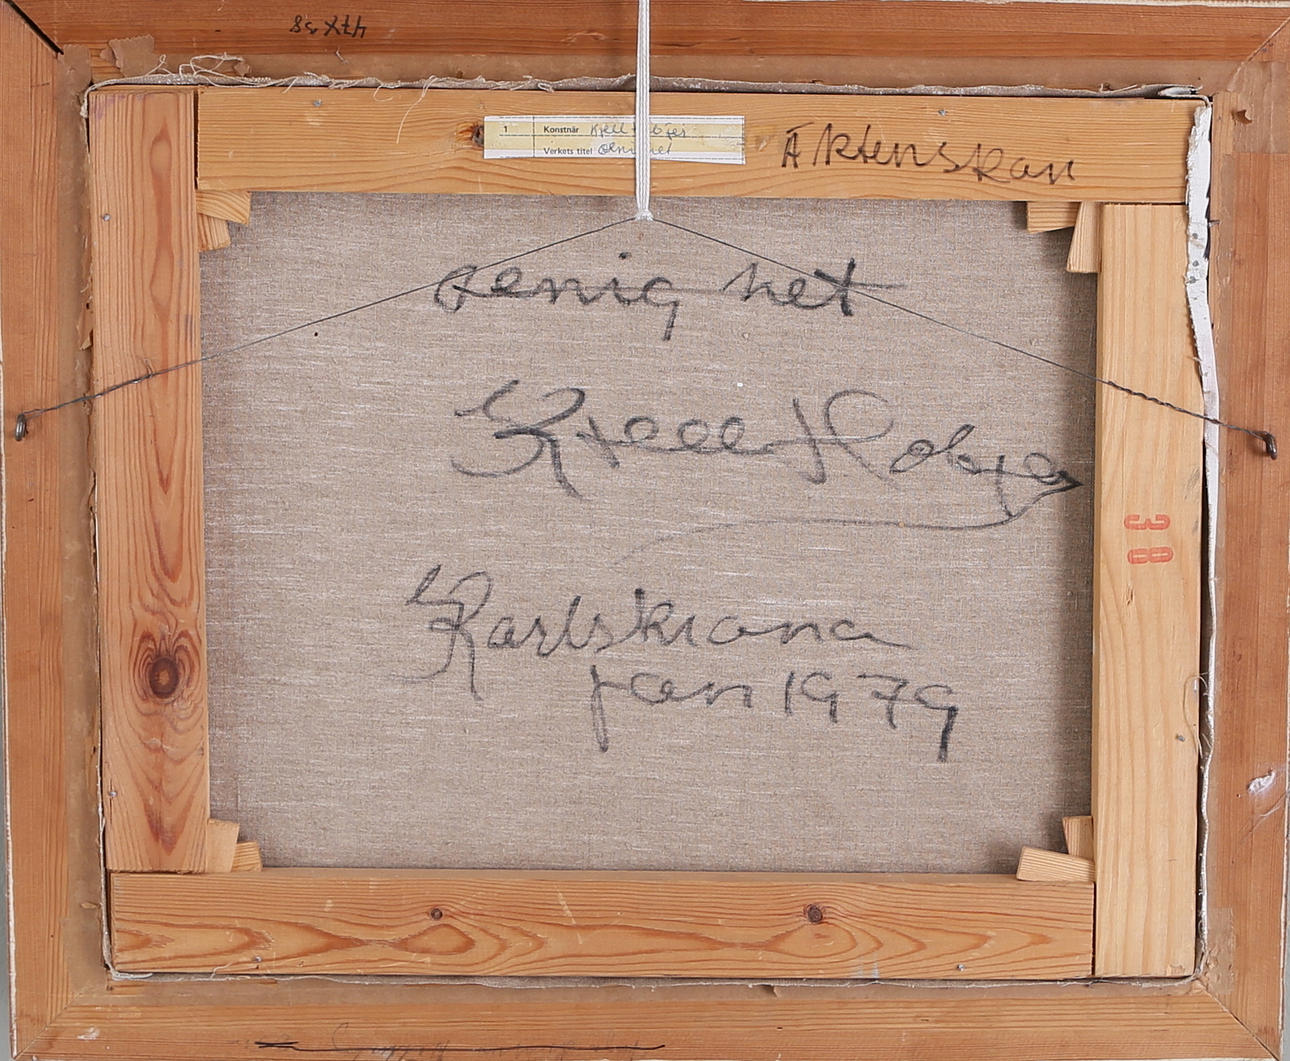 47X38
1 Konstnär Kjell Hobjer
Verkets titel
Äktenskan
oenig het
Kjell Hobjer
38
Karlskrona
jan 1979